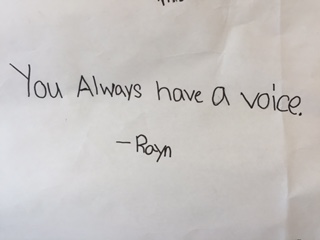 You Always have a voice.
- Rayn